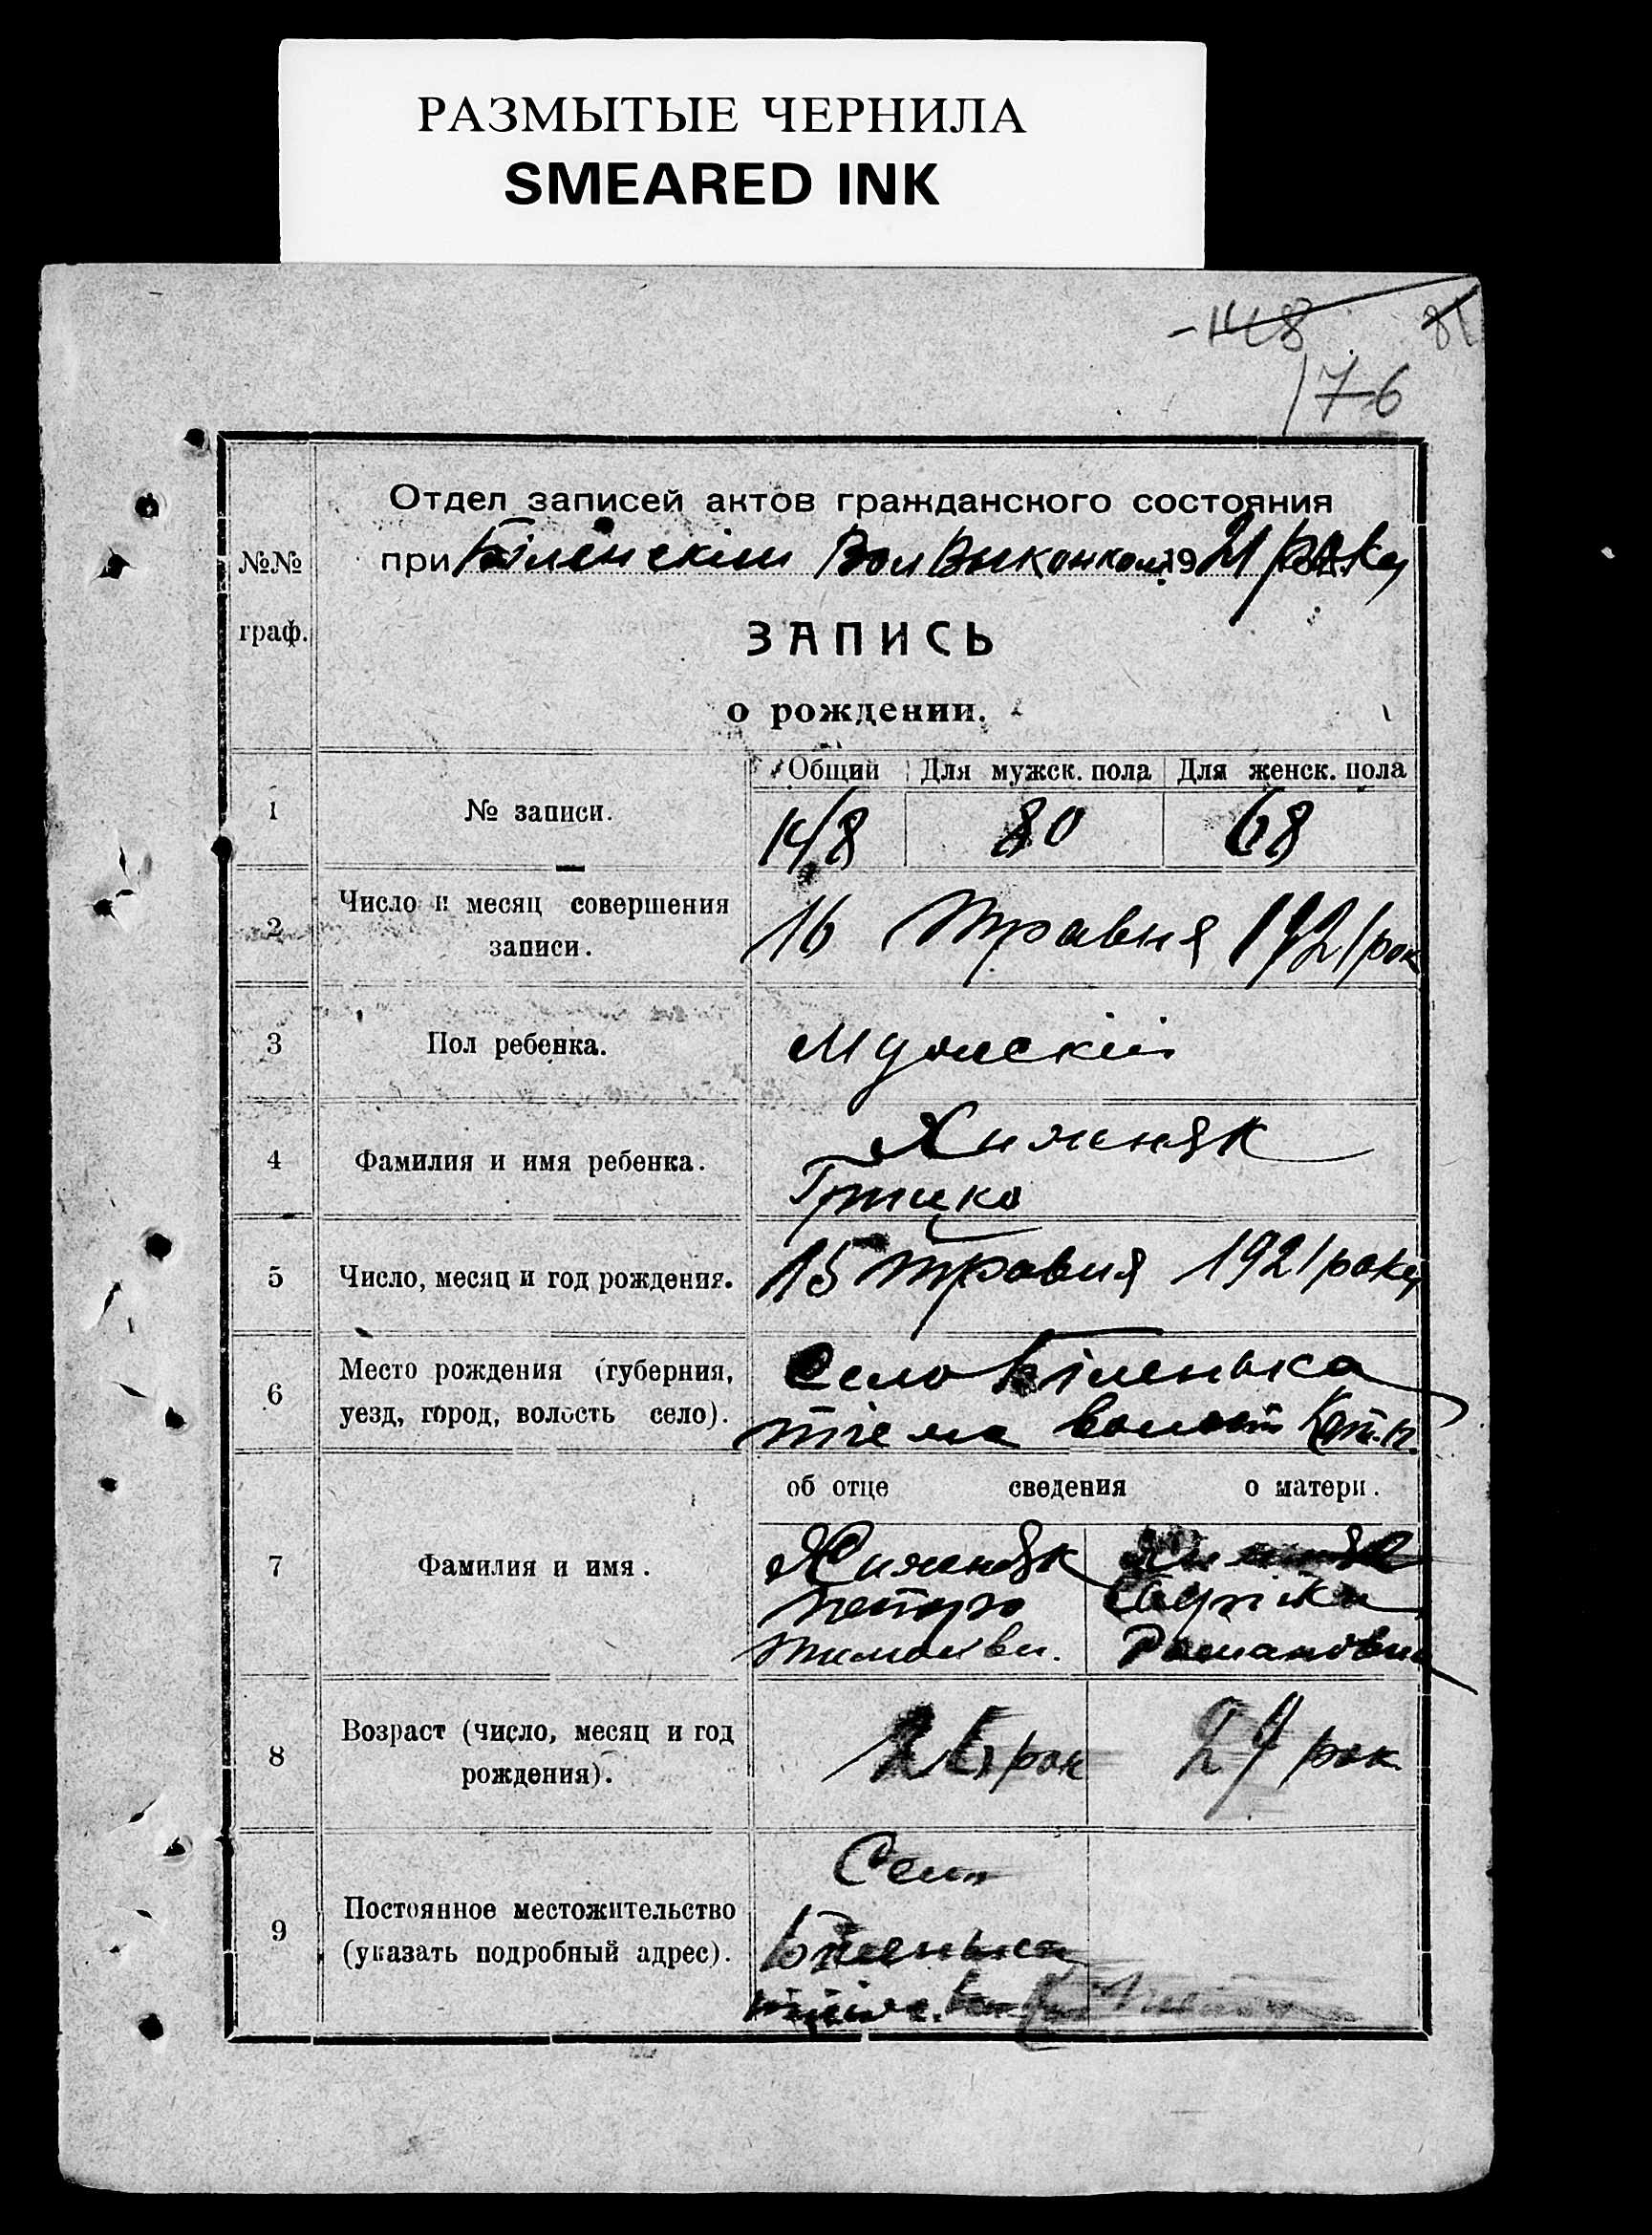 РАЗМЫТЫЕ ЧЕРНИЛА
SMEARED INK
148 81
176
Отдел записей актов гражданского состояния
№№ граф.
при Біленскім Вол Выконком. 1921 року
ЗАПИСЬ
о рождении.
Общий Для мужск. пола Для женск. пола
1 № записи. 148 80 68
2 Число и месяц совершения
записи.
16 Травня 1921 рок
3 Пол ребенка. Мужскій
4 Фамилия и имя ребенка.
Хижняк
Грицко
5 Число, месяц и год рождения. 15 травня 1921 року
6 Место рождения (губерния,
уезд, город, волость село).
Село Біленька
тіе же волост
об отце сведения о матери.
7 Фамилия и имя.
Хижняк
Петро
Романовна
8 Возраст (число, месяц и год
рождения).
26 рок 24 рок
9 Постоянное местожительство
(указать подробный адрес).
Село
Біленька